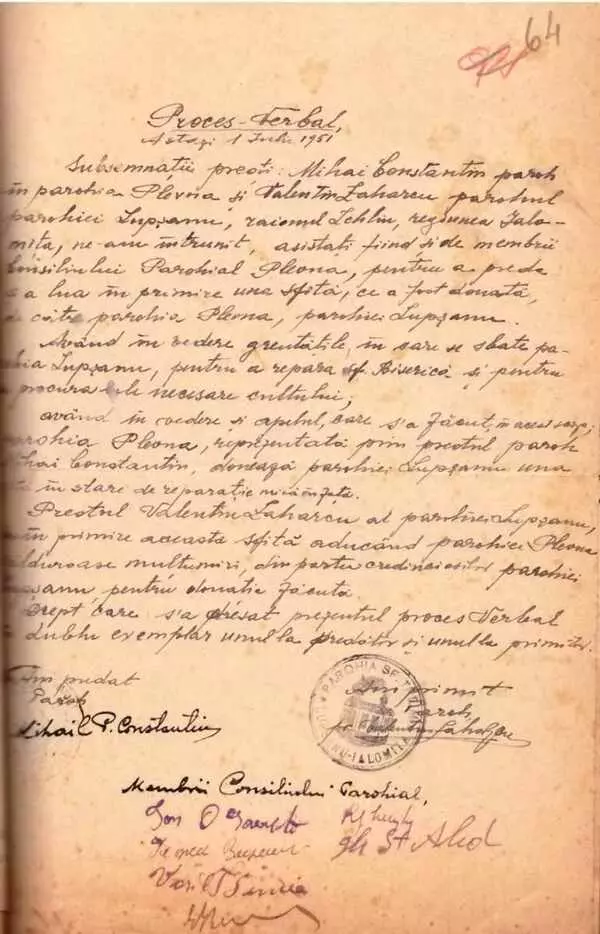 64
Proces-Verbal,
Astăzi 1 Iulie 1951
Subsemnații preoți: Mihai Constantin paroh
în parohia Plevna și Valentin Zaharcu parohul
parohiei Lupșanu, raionul Lehliu, regiunea Ialo-
mița, ne-am întrunit, asistați fiind și de membrii
Consiliului Parohial Plevna, pentru a preda
a a lua în primire una sfită, ce a fost donată,
de către parohia Plevna, parohiei Lupșanu.
Având în vedere greutățile, în care se sbate pa-
hia Lupșanu, pentru a repara sf. Biserică și pentru
procura cele necesare cultului;
având în vedere și apelul, care s'a făcut, în acest
parohia Plevna, reprezentată prin preotul paroh
Mihai Constantin, donează parohiei Lupșanu una
tă în stare de reparație
Preotul Valentin Zaharcu al parohiei Lupșanu,
în primire aceasta sfită aducând parohiei Plevna
călduroase mulțumiri, din partea credincioșilor parohiei
pșanu, pentru donația făcută.
Drept care s'a dresat prezentul proces Verbal
în dublu exemplar unul la predător și unul la primitor.
Am predat
Paroh
Mihail P. Constantin
Am primit
Paroh,
pr. Valentin
PAROHIA SF.
NU-IALOMIȚA
Membrii Consiliului Parohial,
Ion
Vasil
Gh St